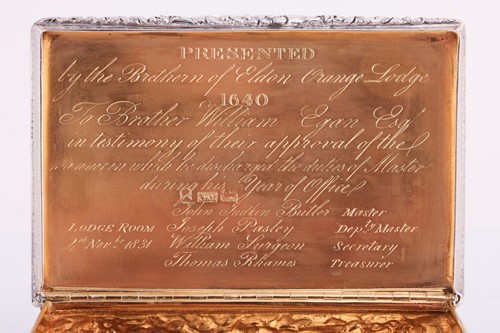 PRESENTED
by the Brethern of Eldon Orange Lodge
1640
To Brother William Egan Esqr
in testimony of their approval of the
manner in which he discharged the duties of Master
during his Year of Office
John Judkin Butler Master
LODGE ROOM Joseph Pasley Depty Master
1st Novbr 1831 William Surgeon Secretary
Thomas Rhames Treasurer